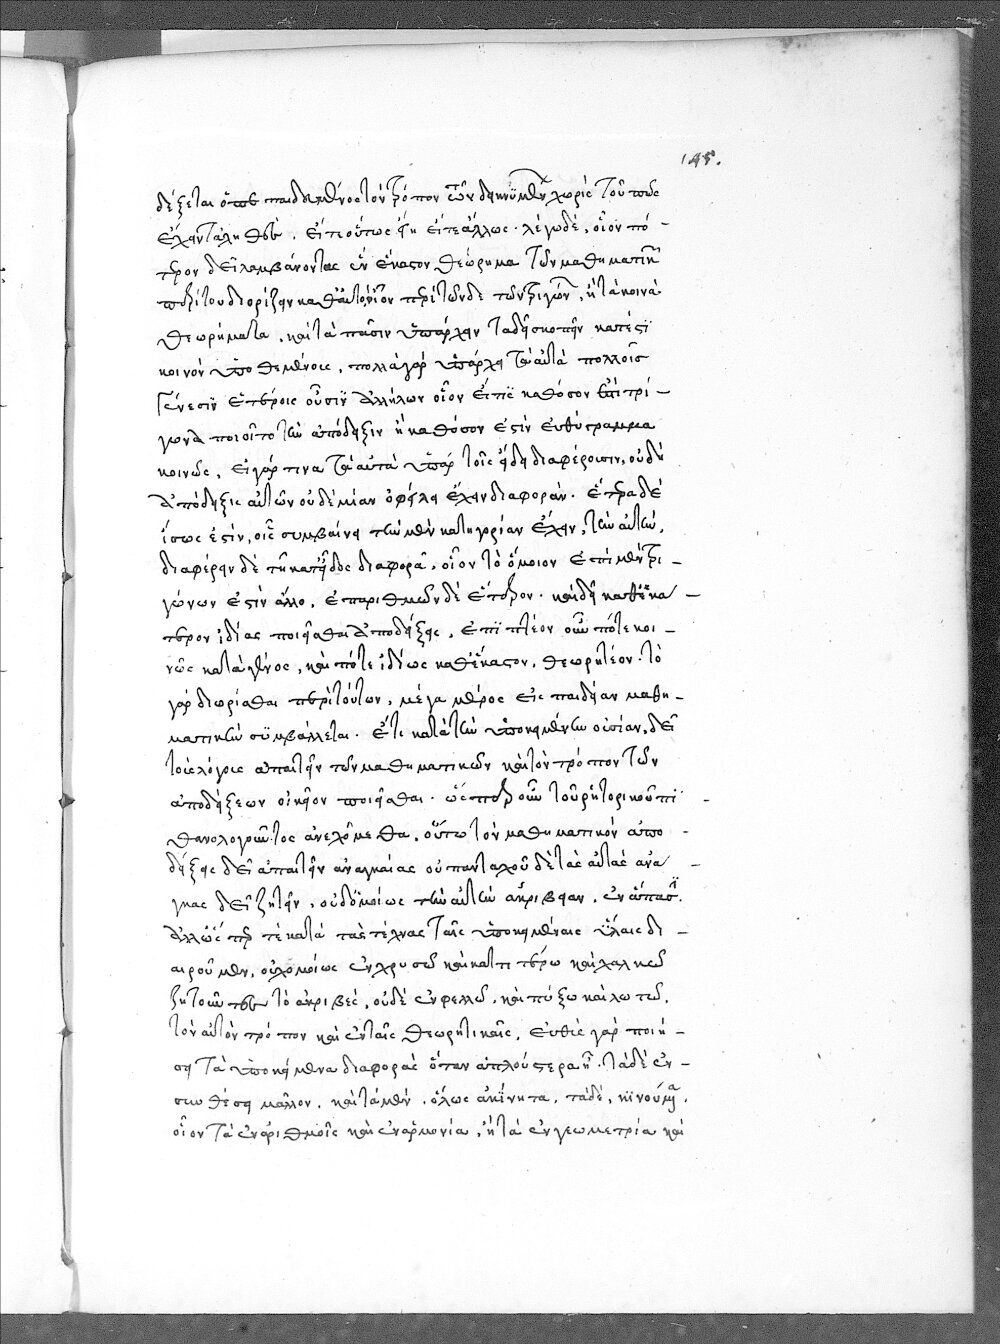 145.
δέξεται ὁ πε παιδευμένος τὸν τρόπον τῶν δεικνυϊμένων χωρὶς τοῦ πῶς
ἔχειν τἀληθὲς. εἴτε οὕτως ἔχει εἴτε ἄλλως. λέγω δὲ, οἷον πό-
τερον δεῖ λαμβάνοντας ἓν ἕκαστον θεώρημα τῶν μαθηματικῶν
περὶ τούτου διορίζειν καθ' αὑτό, οἷον περὶ τῶνδε τῶν τριγώνων, ἢ τὰ κοινὰ
θεωρήματα, καὶ τὰ πᾶσιν ὑπάρχειν τα δεῖ σκοπεῖν κατά τϊ
κοινὸν ὑποθεμένοις, πολλὰ γὰρ ὑπάρχει ταὐτὰ πολλοῖς
γένεσιν ἑτέροις οὖσιν ἀλλήλων οἷον εἴ τις καθόσον ἐπὶ τρί-
γωνα ποιοῖτο τὴν ἀπόδειξιν ἢ καθόσον ἐστὶν εὐθύγραμμα
κοινῶς, εἰ γάρ τινα ταὐτὰ ὑπάρχει τοῖς εἴδει διαφέρουσιν, οὐδὲ
ἀπόδειξις αὐτῶν οὐδεμίαν ὀφείλει ἔχειν διαφοράν. ἕτερα δέ
ἴσως ἐστὶν, οἷς συμβαίνει τὴν μὲν κατηγορίαν ἔχειν τὴν αὐτὴν,
διαφέρειν δὲ τῇ κατ' εἶδος διαφορᾷ, οἷον τὸ ὅμοιον ἐπὶ μὲν τρι-
γώνων ἐστὶν ἄλλο, ἐπ' ἀριθμῶν δὲ ἕτερον. καὶ δεῖ καθ' ἑκά-
τερον ἰδίας ποιεῖσθαι ἀποδείξεις, ἐπὶ πλέον οὖν πότε κοι-
νῶς κατὰ γένος, καὶ πότε ἰδίως καθ' ἕκαστον, θεωρητέον. τὸ
γὰρ διωρίσθαι περὶ τούτων, μέγα μέρος εἰς παιδείαν μαθη-
ματικὴν συμβάλλεται. ἔτι κατὰ τὴν ὑποκειμένην οὐσίαν, δεῖ
τοὺς λόγους ἀπαιτεῖν τῶν μαθηματικῶν καὶ τὸν τρόπον τῶν
ἀποδείξεων οἰκεῖον ποιεῖσθαι. ὥσπερ οὖν τοῦ ῥητορικοῦ πϊ-
θανολογοῦντος ἀνεχόμεθα, οὕτω τὸν μαθηματικὸν ἀπο-
δείξεις δεῖ ἀπαιτεῖν ἀναγκαίας οὐ πανταχοῦ δὲ τὰς αὐτὰς ἀνά-
γκας δεῖ ζητεῖν, οὐδ' ὁμοίως τὴν αὐτὴν ἀκρίβειαν, ἐν ἅπασϊ.
ἀλλ' ὥσπερ τὲ κατὰ τὰς τέχνας ταῖς ὑποκειμέναις ὕλαις δι-
αιροῦμεν, οὐχ ὁμοίως ἐν χρυσῷ καὶ καττιτέρῳ καὶ χαλκῷ
ζητοῦντες τὸ ἀκριβές, οὐδὲ ἐν φελλῷ, καὶ πύξῳ καὶ λωτῷ,
τὸν αὐτὸν τρόπον καὶ ἐν ταῖς θεωρητικαῖς, εὐθὺς γὰρ ποιή-
σει τὰ ὑποκείμενα διαφορὰς ὅταν ἁπλούστερα ᾖ. τὰ δὲ ἐν
συνθέσει μᾶλλον. καὶ τὰ μὲν, ὅλως ἀκίνητα, τὰ δὲ, κϊνούμενα,
οἷον τὰ ἐν ἀριθμοῖς καὶ ἐν ἁρμονίᾳ, ἢ τὰ ἐν γεωμετρίᾳ καὶ